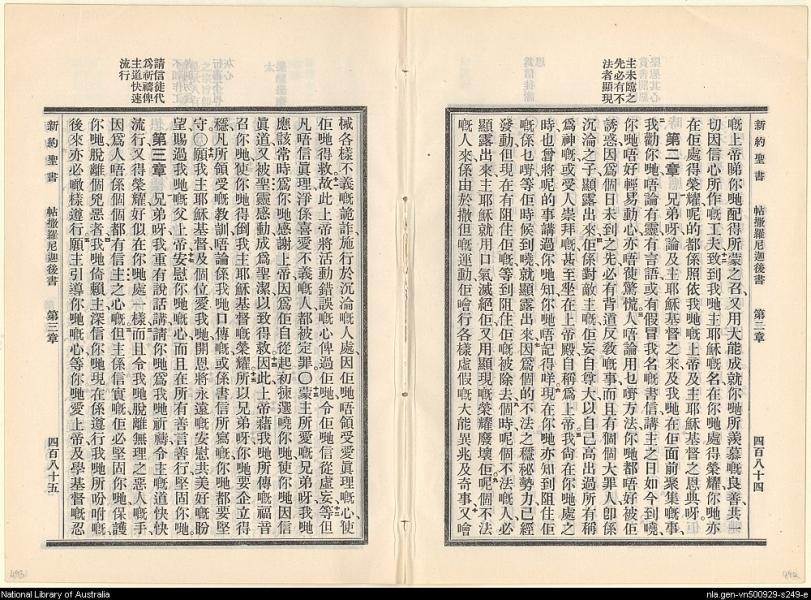 主未臨之
先必有不
法者顯現
新約聖書 帖撒羅尼迦後書 四百八十四
嘅上帝睇你哋配得所蒙之召又用大能成就你哋所羨慕嘅良善共
切因信心所作嘅工夫致到我哋主耶穌嘅名在你哋處得榮耀你哋亦
在佢處得榮耀呢的都係照依我哋嘅上帝及主耶穌基督之恩典呀
第二章 兄弟呀我論及主耶穌基督之來及我哋在佢面前聚集嘅事
我勸你哋唔論有靈有言語或有假冒我名嘅書信講主之日如今到嘵
你哋唔好輕易動心亦唔使驚慌人唔論用乜嘢方法你哋都唔好被佢
誘惑因爲個日未到之先必有背道反敎嘅事而且有個個大罪人卽係
沉淪之子顯露出來佢係對敵主嘅佢妄自尊大以自己高出過所有稱
爲神嘅或受人崇拜嘅甚至坐在上帝殿自稱爲上帝我尙在你哋處之
時也曾將呢的事講過你哋知你哋唔記得咩現在你哋亦知到阻住佢
係乜嘢等佢時候到嘵就顯露出來因爲個的不法之穩秘勢力已經
發動但現在有阻住佢嘅等到阻住佢嘅被除去個時呢個不法嘅人必
顯露出來主耶穌就用口氣滅絕佢又用顯現嘅榮耀廢壞佢呢個不法
嘅人來係由於撒但嘅運動佢噲行各樣虛假嘅大能異兆及奇事又噲
請信徒代
爲祈禱俾
主道快速
流行
械各樣不義嘅詭詐施行於沉淪嘅人處因佢哋唔領受愛眞理嘅心使
佢哋得救故此上帝將活動錯誤嘅心俾過佢哋令佢哋信從虛妄等但
凡唔信眞理淨係喜愛不義嘅人都被定罪〇蒙主所愛嘅兄弟呀我哋
應該常時爲你哋感謝上帝因爲佢自從起初揀選嘵你哋使你哋因信
眞道又被聖靈感動成爲聖潔以致得救因此上帝藉我哋所傳嘅福音
召你哋使你哋得倒我主耶穌基督嘅榮耀所以兄弟呀你哋要企立得
穩凡所領受嘅敎訓唔論係我哋口傳嘅或係書信所寫嘅你哋都要堅
守〇願我主耶穌基督及個位愛我哋開恩將永遠嘅安慰共美好嘅盼
望賜過我哋嘅父上帝安慰你哋嘅心而且在所有善言善行堅固你哋
第三章 兄弟呀我重有說話講請你哋爲我哋祈禱令主嘅道快快
流行又得榮耀好似在你哋處一樣而且令我哋脫離無理之惡人嘅手
因爲人唔係個個都有信主之心嘅但主係信實嘅佢必堅固你哋保護
你哋脫離個兇惡者我哋倚賴主深信你哋現在係遵行我哋所吩咐嘅
後來亦必噉樣遵行願主引導你哋嘅心等你哋愛上帝及學基督嘅忍
新約聖書 帖撒羅尼迦後書 第三章 四百八十五
National Library of Australia
nla.gen-vn500929-s249-e